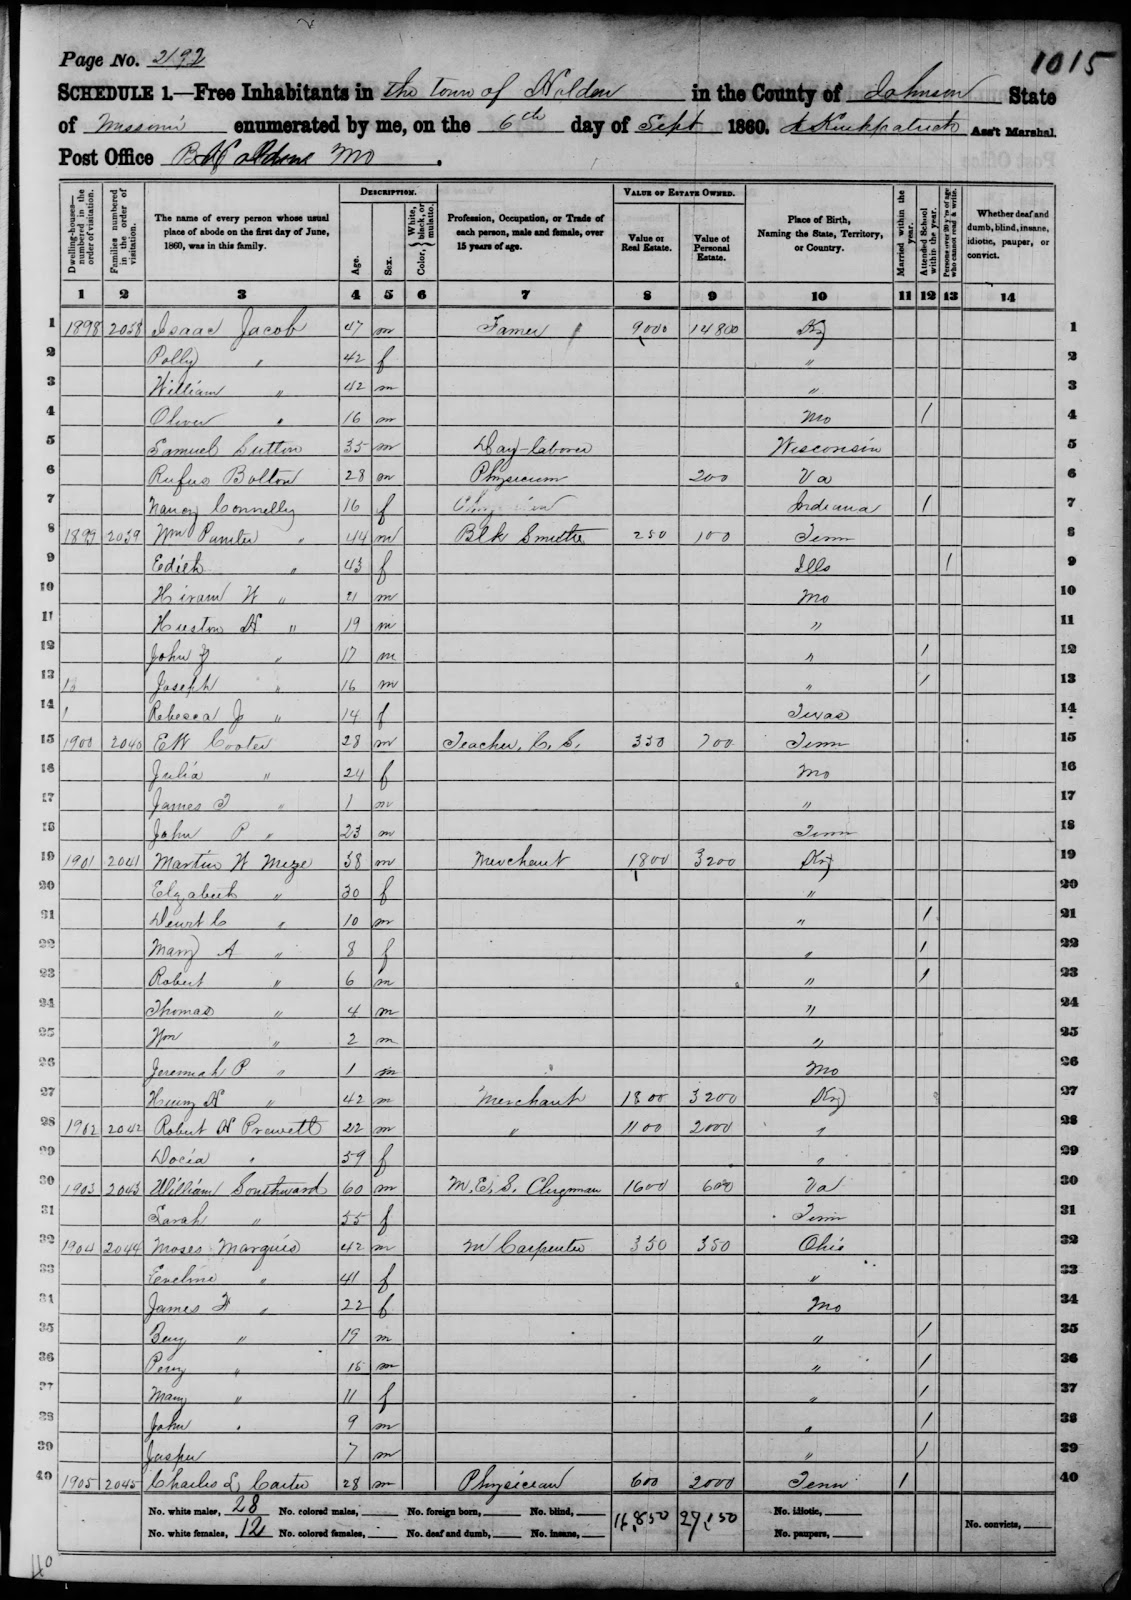 Page No. 2192
1015
SCHEDULE 1.—Free Inhabitants in the town of Holden in the County of Johnson State
of Missouri enumerated by me, on the 6th day of Sept 1860. Kirkpatrick Ass't Marshal.
Post Office Holden Mo.
Dwelling-houses—numbered in the order of visitation.
Families numbered in the order of visitation.
The name of every person whose usual place of abode on the first day of June, 1860, was in this family.
DESCRIPTION.
Age.
Sex.
Color, { White, black, or mulatto.
Profession, Occupation, or Trade of each person, male and female, over 15 years of age.
VALUE OF ESTATE OWNED.
Value of Real Estate.
Value of Personal Estate.
Place of Birth, Naming the State, Territory, or Country.
Married within the year.
Attended School within the year.
Persons over 20 y'rs of age who cannot read & write.
Whether deaf and dumb, blind, insane, idiotic, pauper, or convict.
1 2 3 4 5 6 7 8 9 10 11 12 13 14
1 1898 2038 Isaac Jacob 47 m Famer " 9000 14800 Ky 1
2 Polly " 42 f " 2
3 William " 42 m " 3
4 Oliver " 16 m Mo / 4
5 Samuel Sutton 35 m Day-laborer Wisconsin 5
6 Rufus Bolton 28 m Physicium 200 Va 6
7 Nancy Connelly 16 f Indiana / 7
8 1899 2039 Wm " 44 m Blk Smith 250 100 Tenn 8
9 Edith " 43 f Ills 1 9
10 Hiram W " 21 m Mo 10
11 Huston H " 19 m " 11
12 John " 17 m " / 12
13 Joseph " 16 m " / 13
14 Rebecca J " 14 f Texas 14
15 1900 2040 EW Cooter 28 m Teacher, C. S. 350 700 Tenn 15
16 Julia " 24 f Mo 16
17 James T " 1 m " 17
18 John P " 23 m Tenn 18
19 1901 2041 Martin W Mize 38 m Merchant 1800 3200 Ky 19
20 Elizabeth " 30 f " 20
21 Dewit C " 10 m " / 21
22 Mary A " 8 f " / 22
23 Robert " 6 m " / 23
24 Thomas " 4 m " 24
25 Wm " 2 m " 25
26 Jeremiah P " 1 m Mo 26
27 Henry H " 42 m Merchant 1800 3200 Ky 27
28 1902 2042 Robert H Prewett 22 m " 1100 2000 " 28
29 Docia " 59 f " 29
30 1903 2043 William Southward 60 m M. E. S. Clergman 1600 600 Va 30
31 Sarah " 55 f Tenn 31
32 1904 2044 Moses Marquis 42 m M Carpenter 350 350 Ohio 32
33 Eveline " 41 f " 33
34 James " 22 f Mo 34
35 Benj " 19 m " / 35
36 Perry " 15 m " / 36
37 Mary " 11 f " / 37
38 John " 9 m " / 38
39 Jasper " 7 m " / 39
40 1905 2045 Charles L Carter 28 m Physician 600 2000 Tenn 1 40
No. white males, 28 No. colored males, No. foreign born, No. blind, 16,850 27,150 No. idiotic,
No. white females, 12 No. colored females, No. deaf and dumb, No. insane, No. paupers, No. convicts,
40